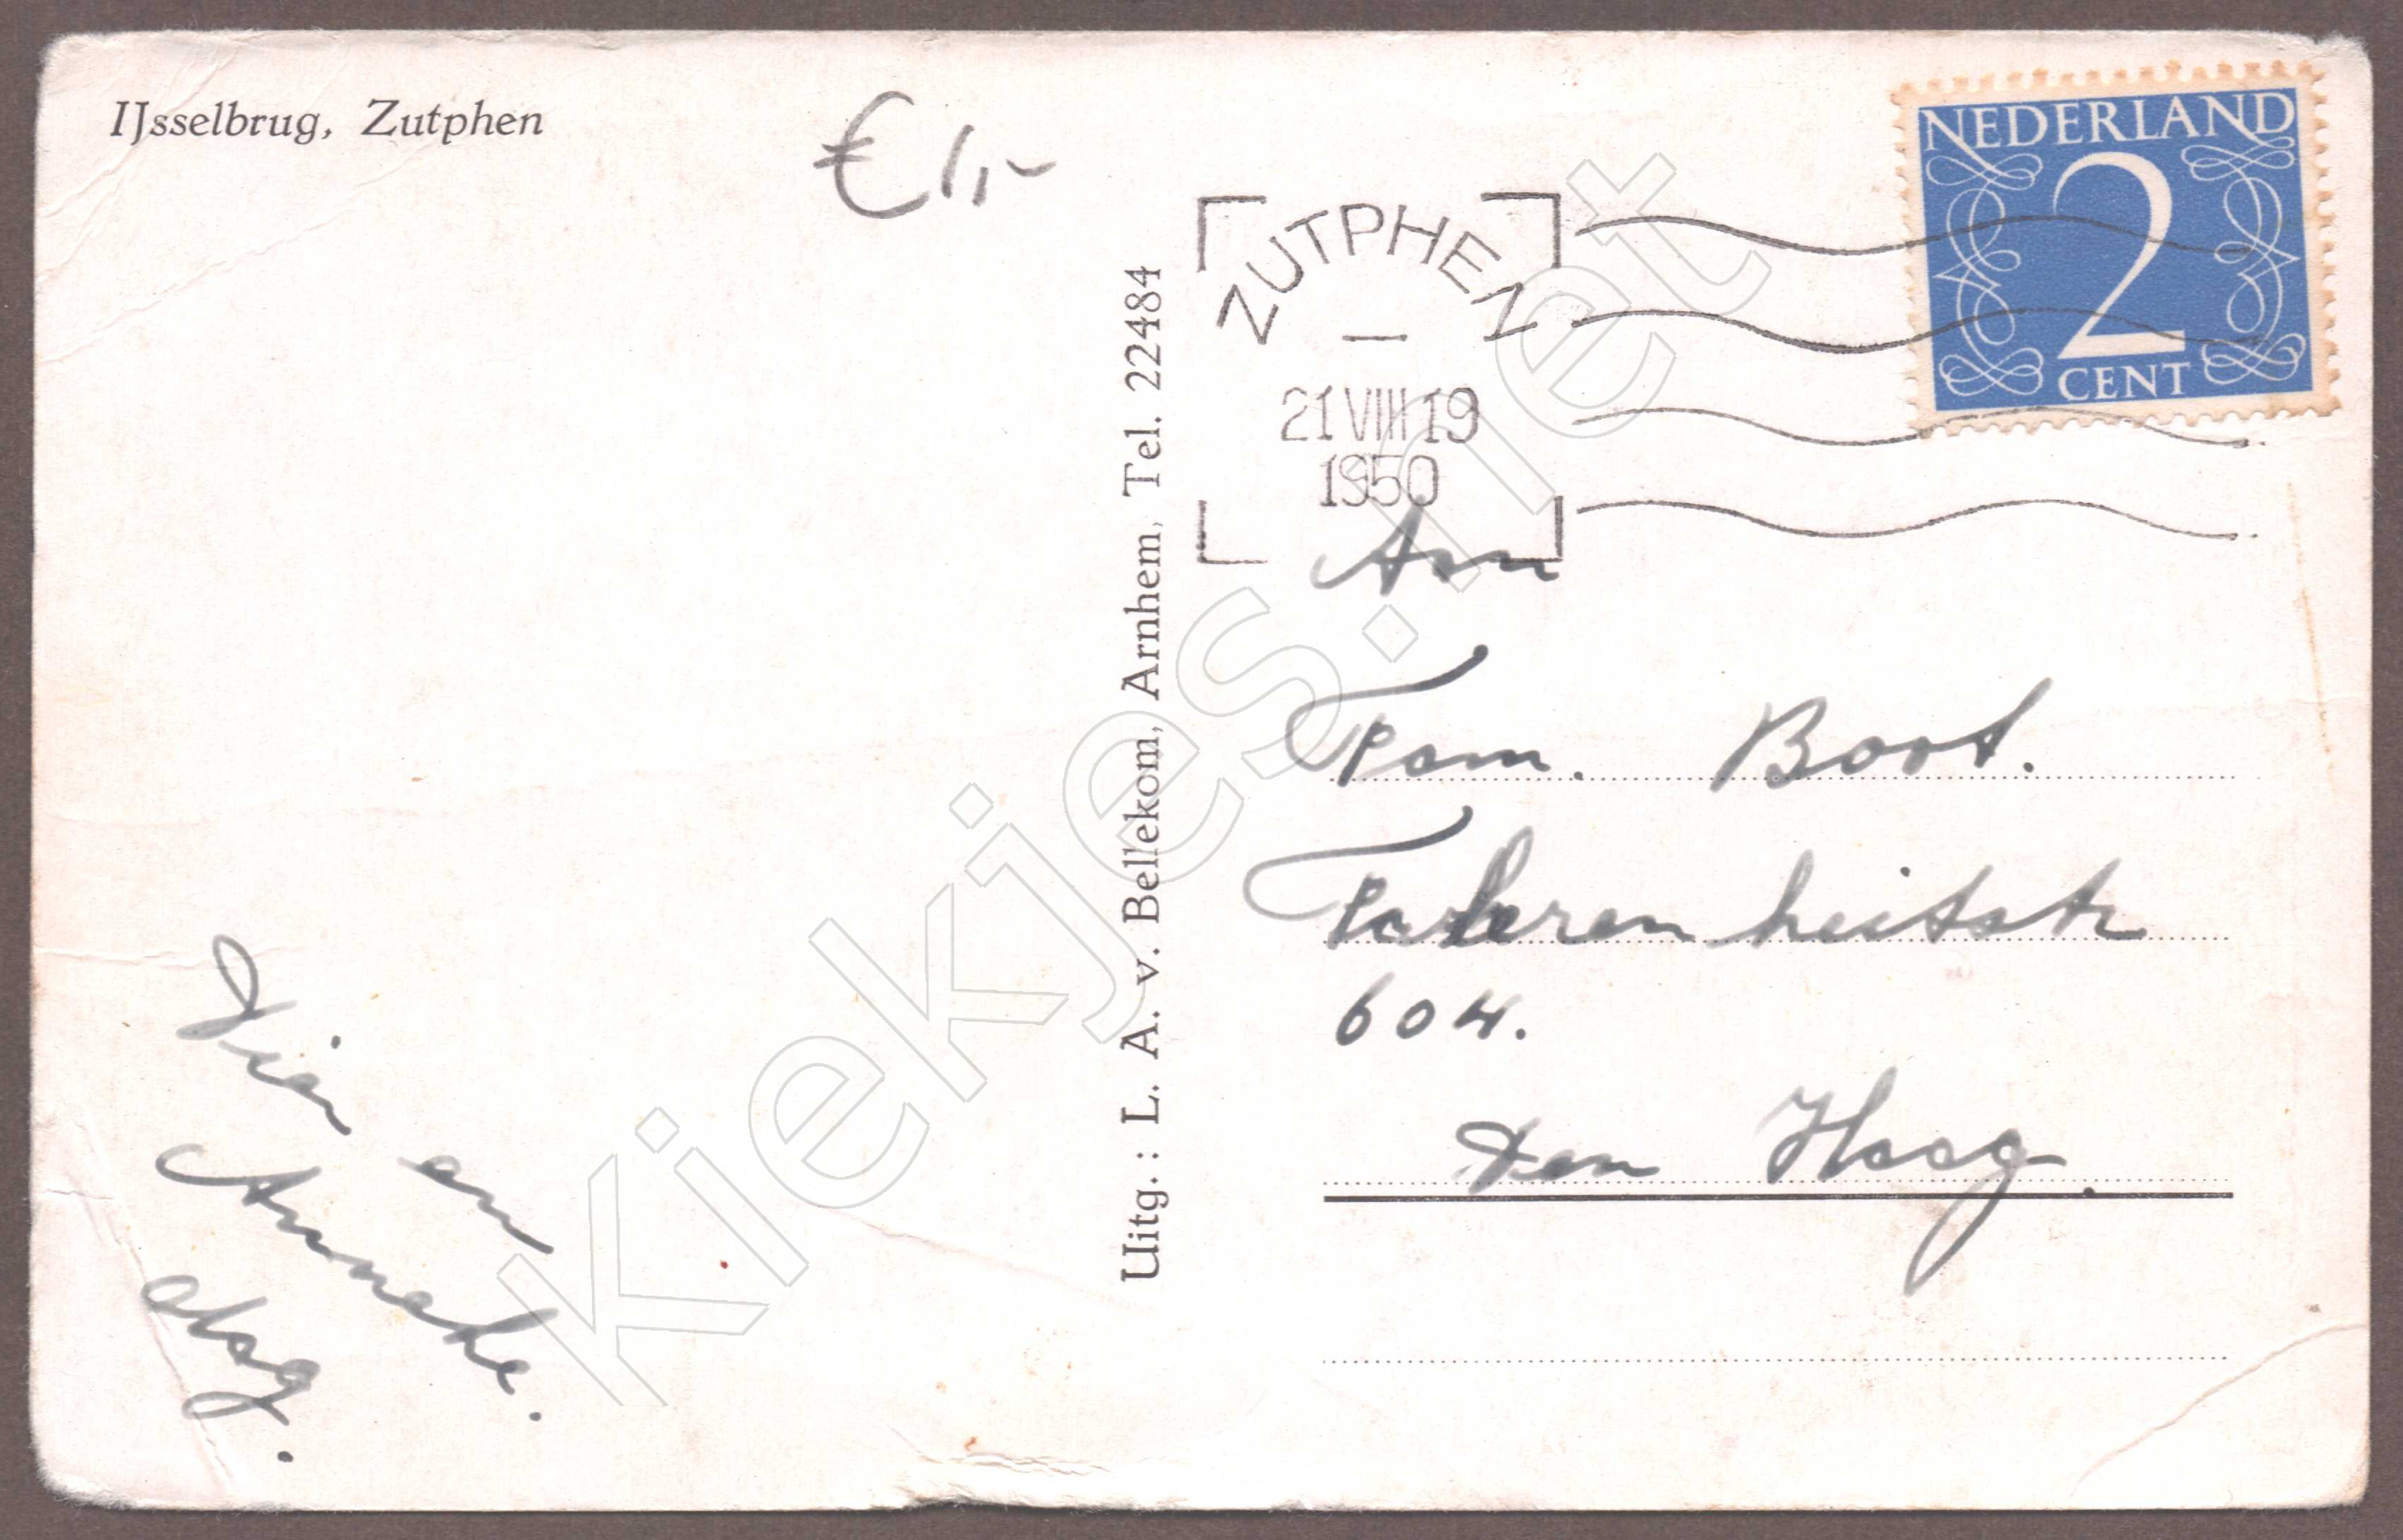 IJsselbrug, Zutphen
€ 1,-
NEDERLAND
2
CENT
ZUTPHEN
21 VIII 19
1950
Uitg.: L. A. v. Bellekom, Arnhem, Tel. 22484
Aan
Fam. Boot.
Fahrenheitstr
604.
Den Haag.
Dien en
Anneke.
dag.
Kiekjes.net